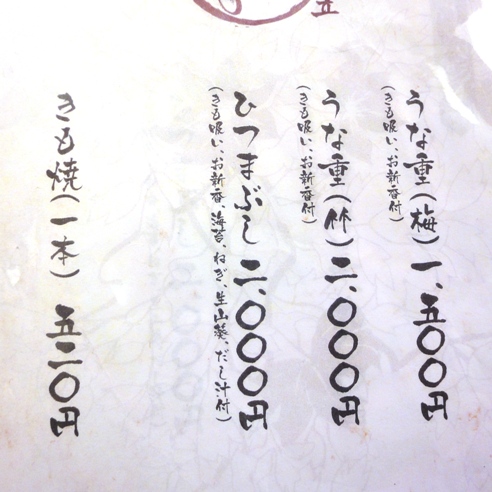 うな重(梅)一、五〇〇円
(きも吸い、お新香付)
うな重(竹)二、〇〇〇円
(きも吸い、お新香付)
ひつまぶし 二、〇〇〇円
(きも吸い、お新香、海苔、ねぎ、生山葵、だし汁付)
きも焼(一本) 五二〇円